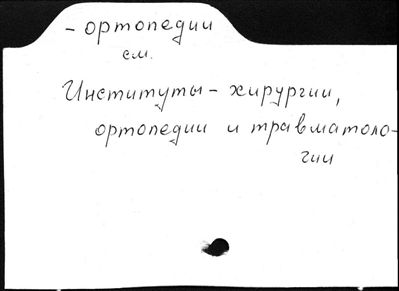 - ортопедии
см.
Институты - хирургии,
ортопедии и травматоло-
гии